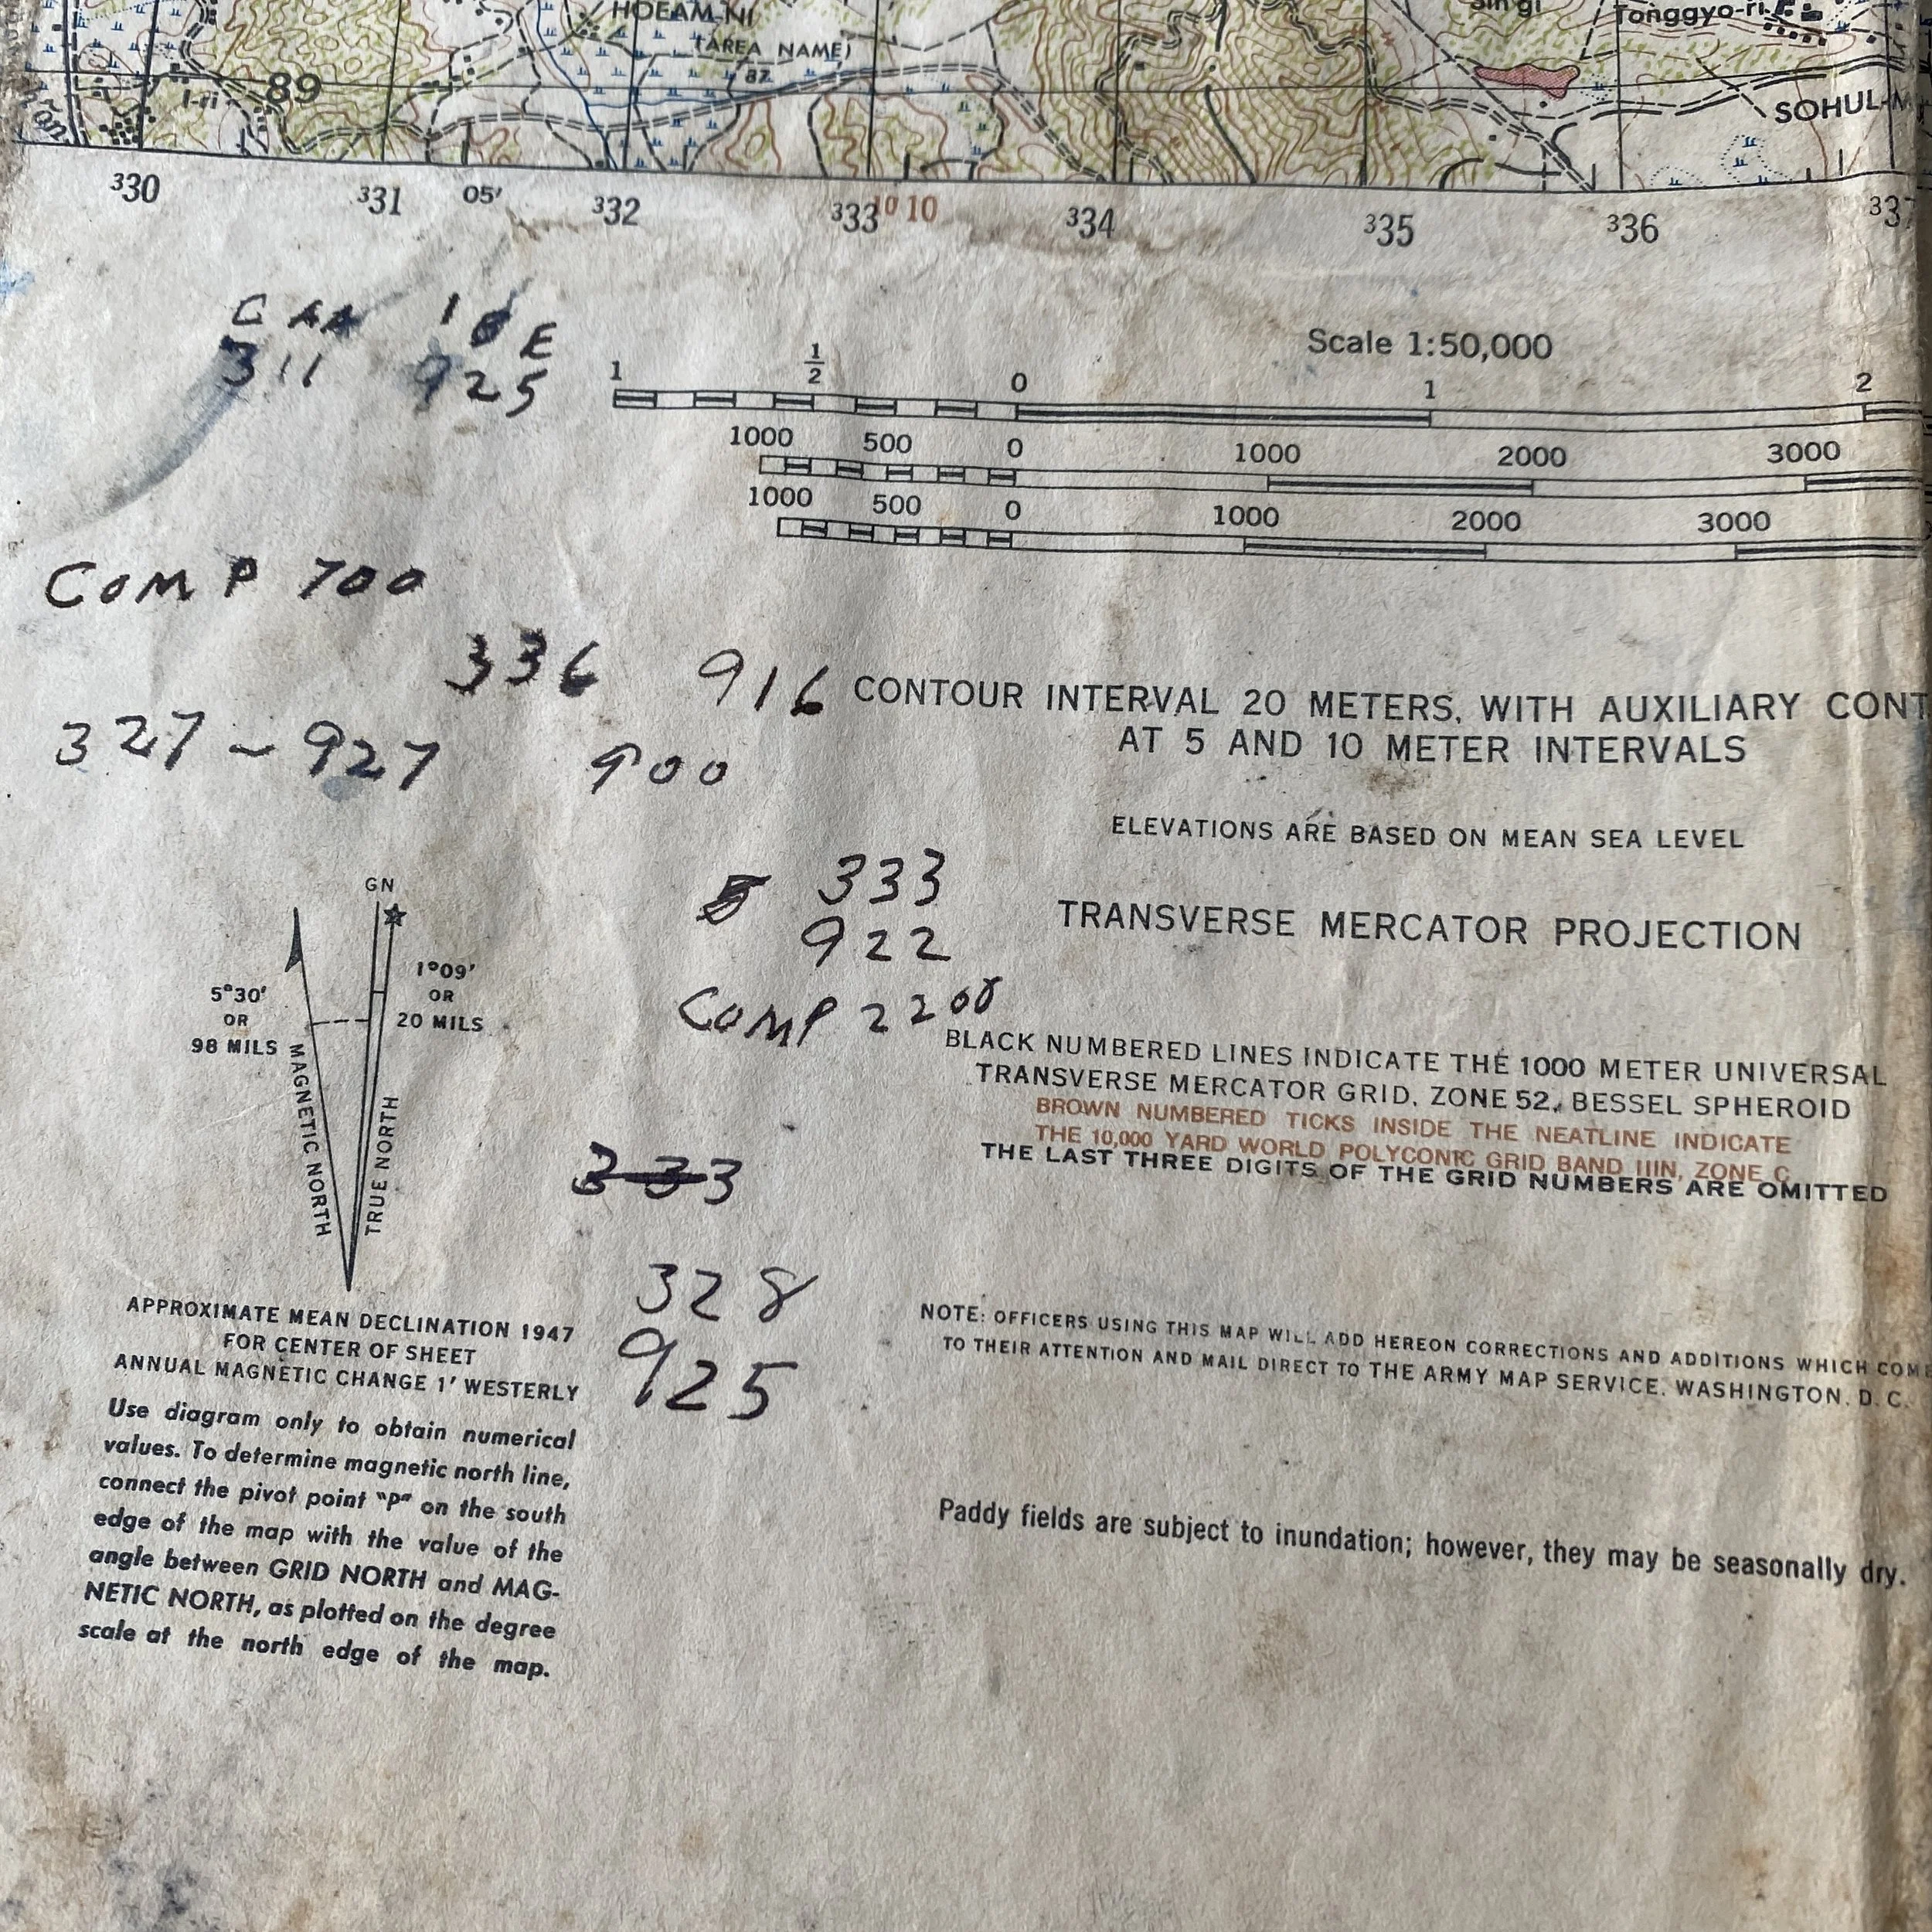 HOEAM-NI
(AREA NAME)
87
Tonggyo-ri
I-ri
89
SOHUL-M
330 331 05' 332 333 10 10 334 335 336 337
311 925
E
Scale 1:50,000
1 1/2 0 1 2
1000 500 0 1000 2000 3000
1000 500 0 1000 2000 3000
COMP 700
336 916
327 - 927 900
CONTOUR INTERVAL 20 METERS, WITH AUXILIARY CONT
AT 5 AND 10 METER INTERVALS
ELEVATIONS ARE BASED ON MEAN SEA LEVEL
333
922
COMP 2200
TRANSVERSE MERCATOR PROJECTION
GN
5°30'
OR
98 MILS
1°09'
OR
20 MILS
MAGNETIC NORTH
TRUE NORTH
BLACK NUMBERED LINES INDICATE THE 1000 METER UNIVERSAL
TRANSVERSE MERCATOR GRID, ZONE 52, BESSEL SPHEROID
BROWN NUMBERED TICKS INSIDE THE NEATLINE INDICATE
THE 10,000 YARD WORLD POLYCONIC GRID BAND IIIN, ZONE C
THE LAST THREE DIGITS OF THE GRID NUMBERS ARE OMITTED
333
328
925
APPROXIMATE MEAN DECLINATION 1947
FOR CENTER OF SHEET
ANNUAL MAGNETIC CHANGE 1' WESTERLY
Use diagram only to obtain numerical
values. To determine magnetic north line,
connect the pivot point "P" on the south
edge of the map with the value of the
angle between GRID NORTH and MAG-
NETIC NORTH, as plotted on the degree
scale at the north edge of the map.
NOTE: OFFICERS USING THIS MAP WILL ADD HEREON CORRECTIONS AND ADDITIONS WHICH COME
TO THEIR ATTENTION AND MAIL DIRECT TO THE ARMY MAP SERVICE, WASHINGTON, D. C.
Paddy fields are subject to inundation; however, they may be seasonally dry.